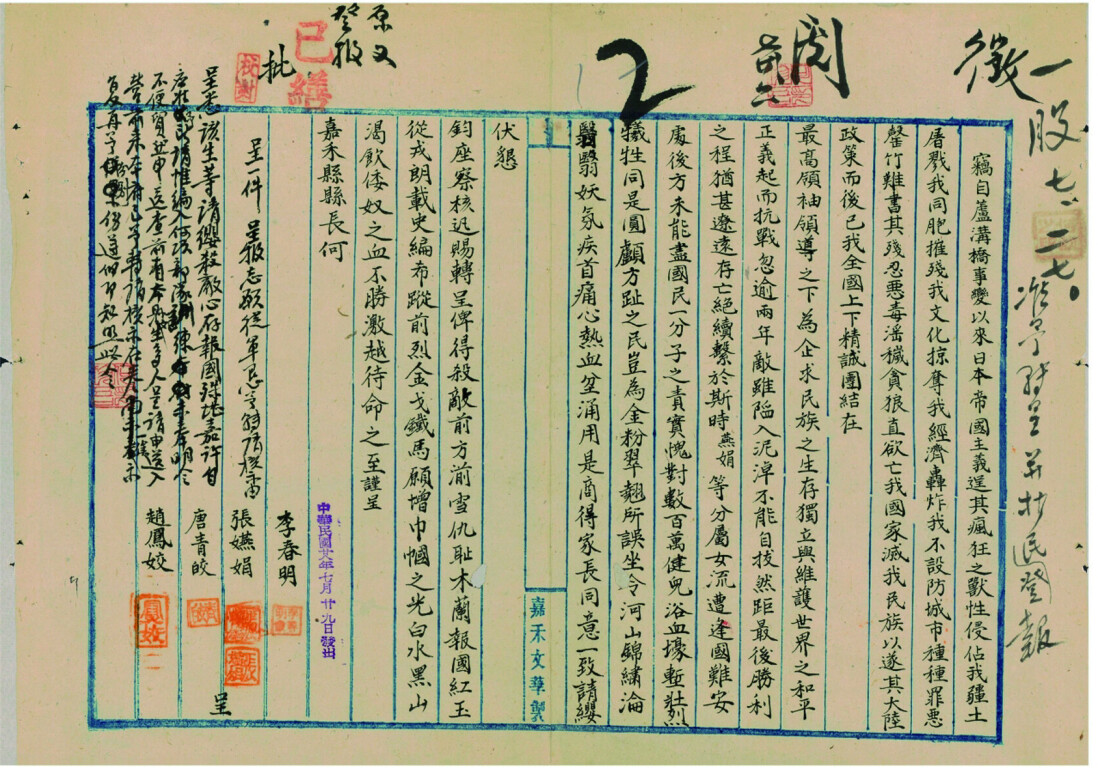 一股七、二七、
准予轉呈並抄送登報
徵
閱
2
原文
登報
已繕
批
竊自蘆溝橋事變以來日本帝國主義逞其瘋狂之獸性侵佔我疆土
屠戮我同胞摧殘我文化掠奪我經濟轟炸我不設防城市種種罪惡
罄竹難書其殘忍惡毒潘穢貪狼直欲亡我國家滅我民族以遂其大陸
政策而後已我全國上下精誠團結在
最高領袖領導之下為企求民族之生存獨立與維護世界之和平
正義起而抗戰忽逾兩年敵雖陷入泥淖不能自拔然距最後勝利
之程猶甚遼遠存亡絕續繫於斯時燕娟等分屬女流遭逢國難安
處後方未能盡國民一分子之責實愧對數百萬健兒浴血壕塹壯烈
犧牲同是圓顱方趾之民豈為金粉翠翹所誤坐令河山錦繡淪
翳妖氛疾首痛心熱血坌涌用是商得家長同意一致請纓
伏懇
鈞座察核迅賜轉呈俾得殺敵前方湔雪仇恥木蘭報國紅玉
從戎朗載史編布蹤前烈金戈鐵馬願增巾幗之光白水黑山
渴飲倭奴之血不勝激越待命之至謹呈
嘉禾縣縣長何
李春明
張嬿娟
唐青皎
趙鳳姣
呈
中華民國廿八年七月廿九日發出
嘉禾文華製
呈一件 呈報志願從軍懇予轉請核由
呈悉該生等請纓殺敵心存報國殊堪嘉許